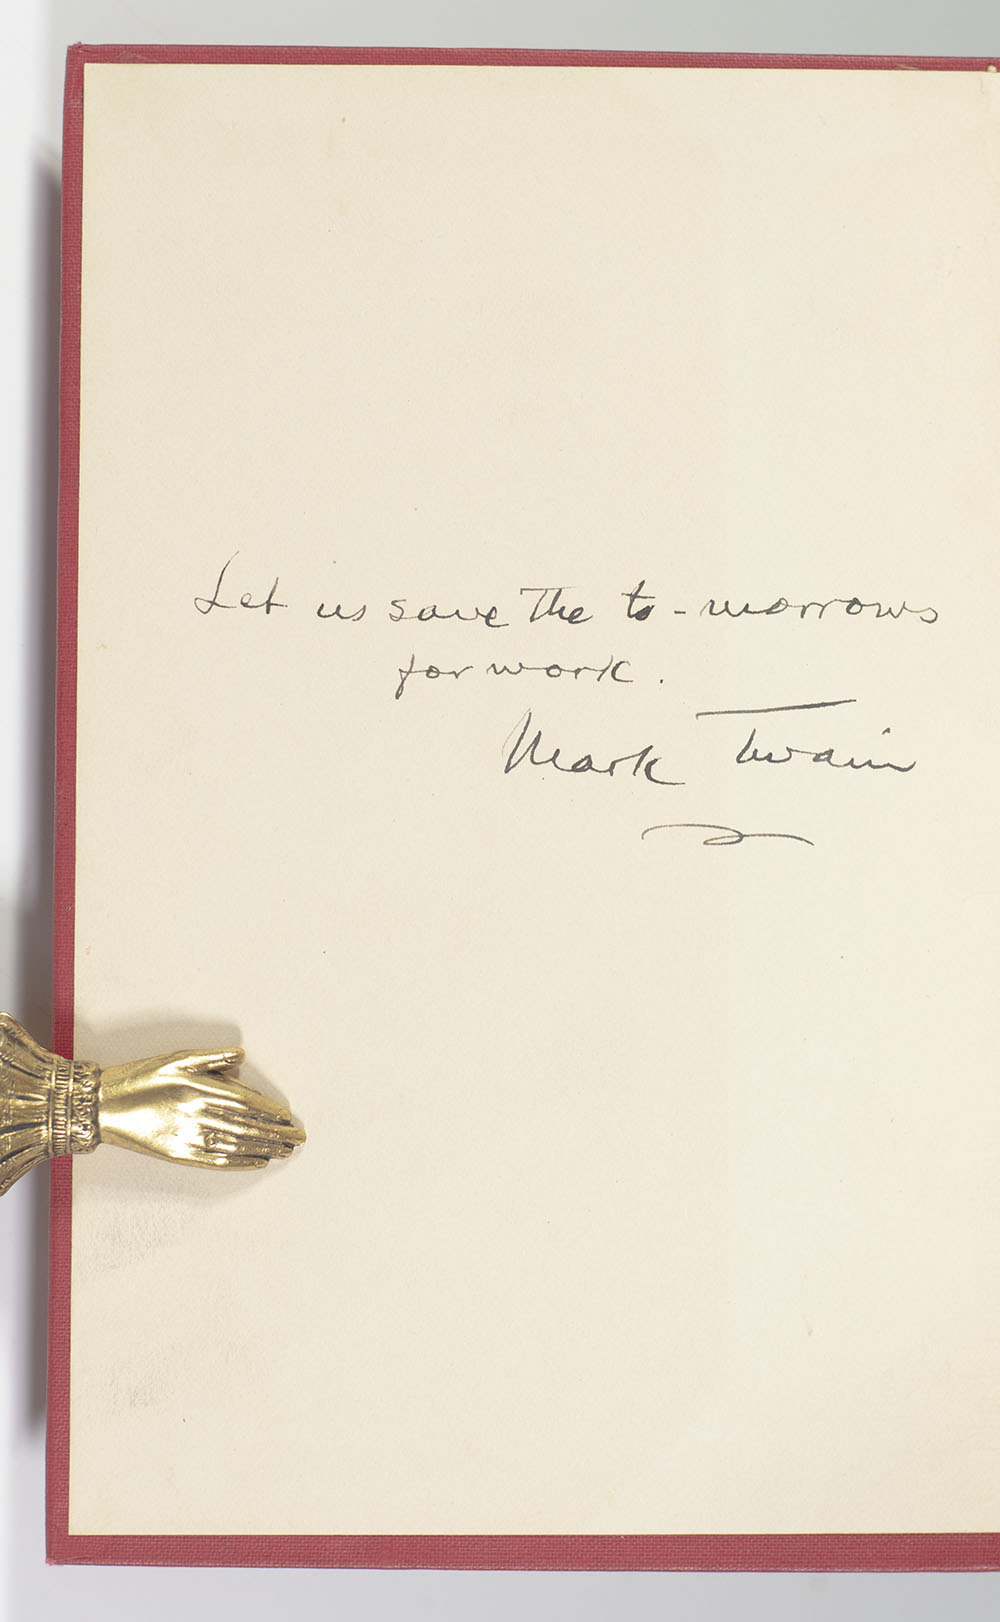 Let us save the to-morrows
for work.
Mark Twain